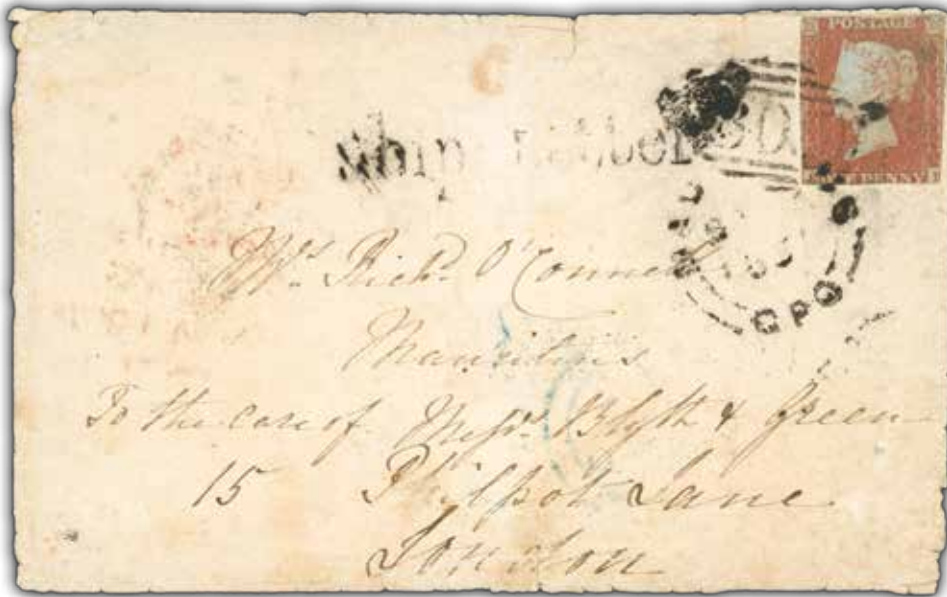 POSTAGE
PENNY
Ship Letter
GPO
Mrs. Richd. O'Connell
Mauritius
To the care of Messrs. Blyth & Green
15 Philpot Lane
London